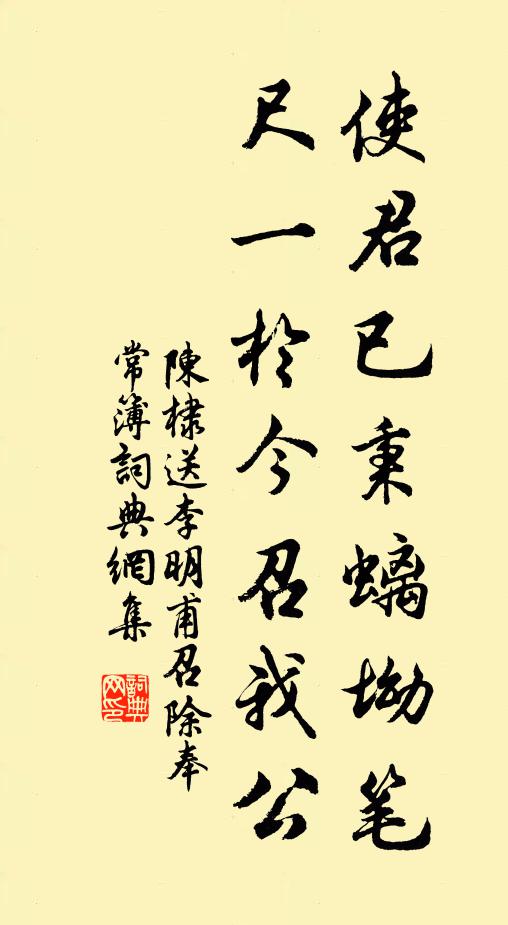 使君已秉螭坳笔
尺一於今召我公
陳棣送李明甫召除奉
常簿詞典網集
詞典网印